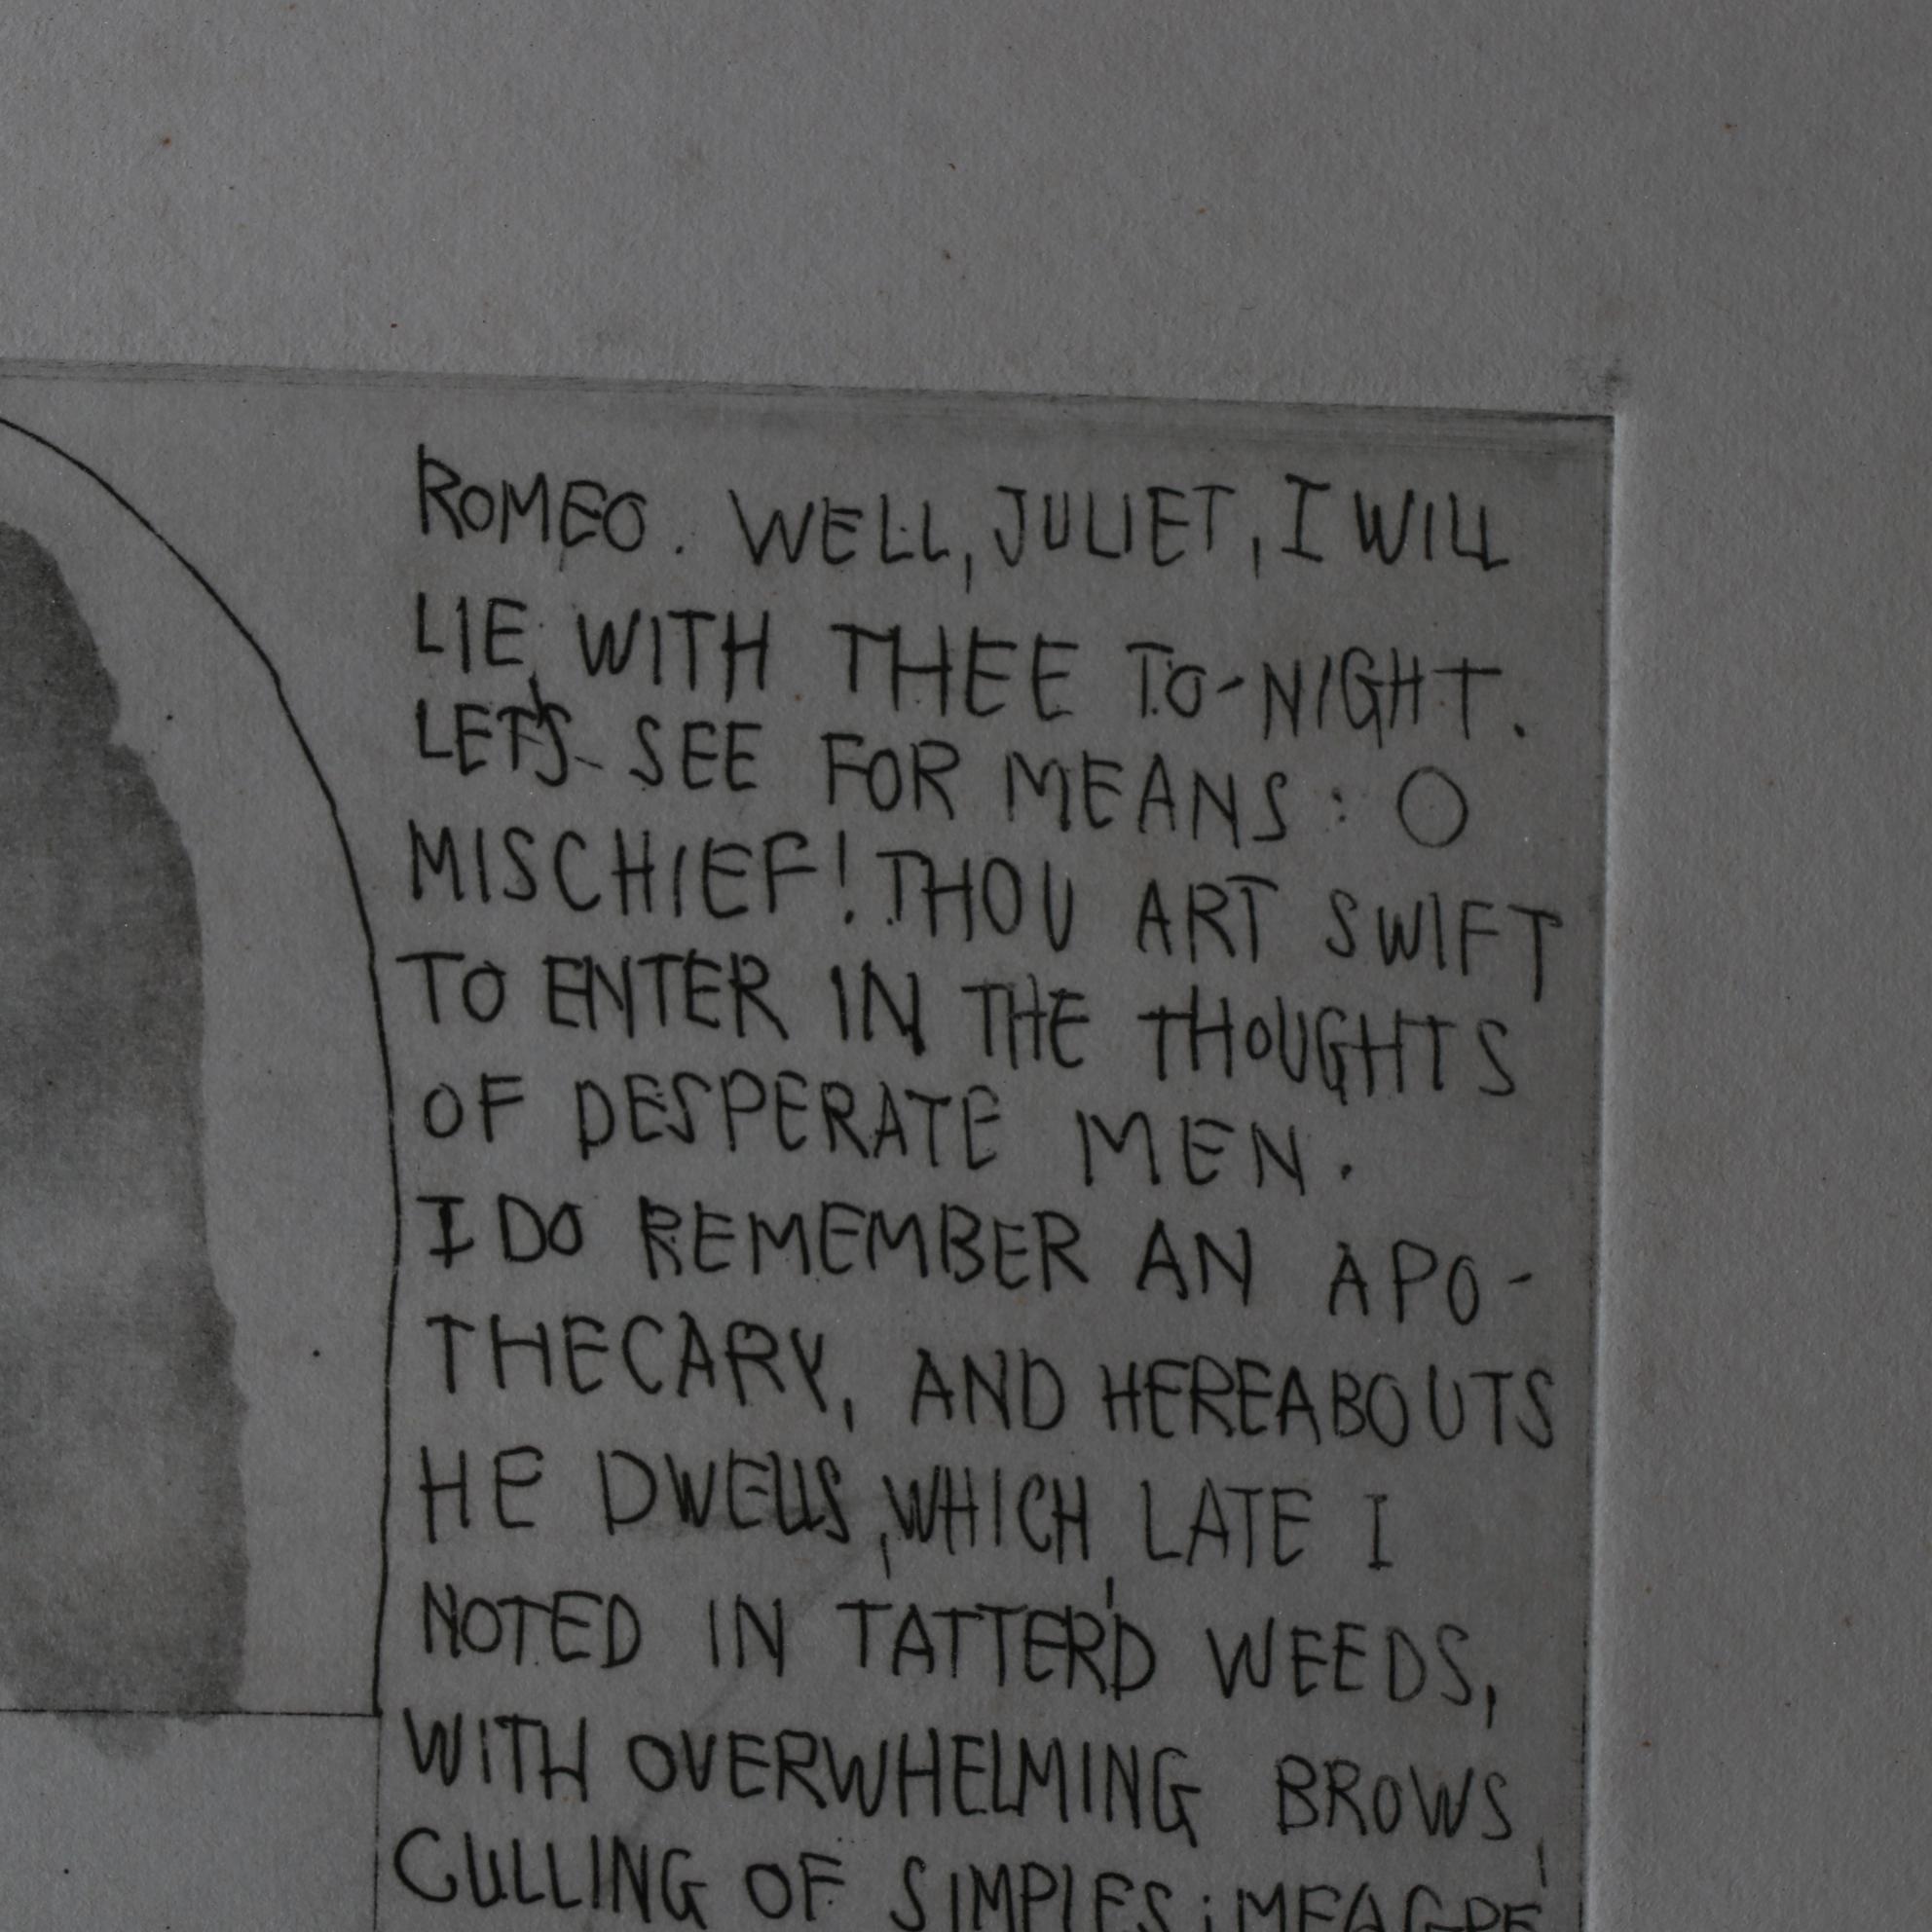 ROMEO. WELL, JULIET, I WILL
LIE WITH THEE TO-NIGHT.
LET'S SEE FOR MEANS: O
MISCHIEF! THOU ART SWIFT
TO ENTER IN THE THOUGHTS
OF DESPERATE MEN.
I DO REMEMBER AN APO-
THECARY, AND HEREABOUTS
HE DWELLS, WHICH LATE I
NOTED IN TATTER'D WEEDS,
WITH OVERWHELMING BROWS,
CULLING OF SIMPLES; MEAGRE